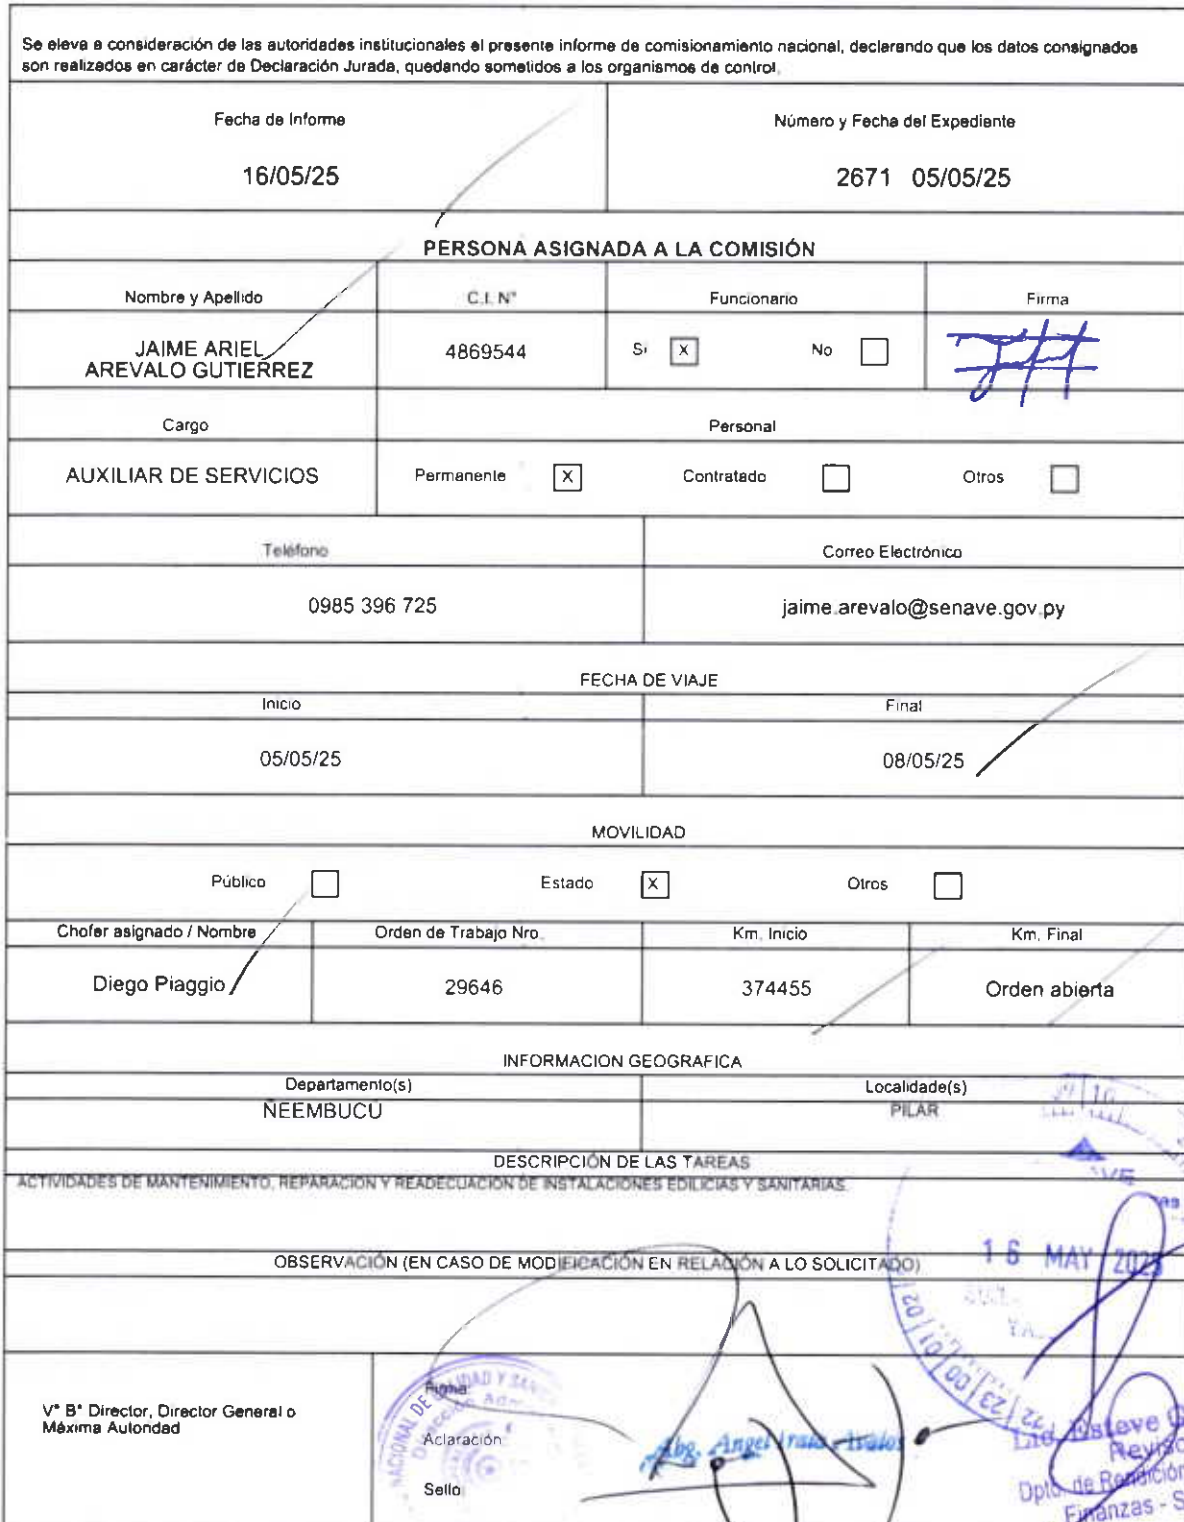 Se eleva a consideración de las autoridades institucionales el presente informe de comisionamiento nacional, declarando que los datos consignados
son realizados en carácter de Declaración Jurada, quedando sometidos a los organismos de control.
Fecha de Informe
Número y Fecha del Expediente
16/05/25
2671 05/05/25
PERSONA ASIGNADA A LA COMISIÓN
Nombre y Apellido
C.I. N°
Funcionario
Firma
JAIME ARIEL
AREVALO GUTIERREZ
4869544
Si X
No
Cargo
Personal
AUXILIAR DE SERVICIOS
Permanente X
Contratado
Otros
Teléfono
Correo Electrónico
0985 396 725
jaime.arevalo@senave.gov.py
FECHA DE VIAJE
Inicio
Final
05/05/25
08/05/25
MOVILIDAD
Público
Estado X
Otros
Chofer asignado / Nombre
Orden de Trabajo Nro.
Km. Inicio
Km. Final
Diego Piaggio
29646
374455
Orden abierta
INFORMACION GEOGRAFICA
Departamento(s)
Localidade(s)
ÑEEMBUCÚ
PILAR
DESCRIPCIÓN DE LAS TAREAS
ACTIVIDADES DE MANTENIMIENTO, REPARACION Y READECUACION DE INSTALACIONES EDILICIAS Y SANITARIAS.
OBSERVACIÓN (EN CASO DE MODIFICACIÓN EN RELACIÓN A LO SOLICITADO)
16 MAY 2025
V° B° Director, Director General o
Máxima Autoridad
Firma:
Aclaración:
Sello:
NACIONAL DE
Abg. Angel
Lic. Esteve
Dpto. de Rendición
Finanzas - S